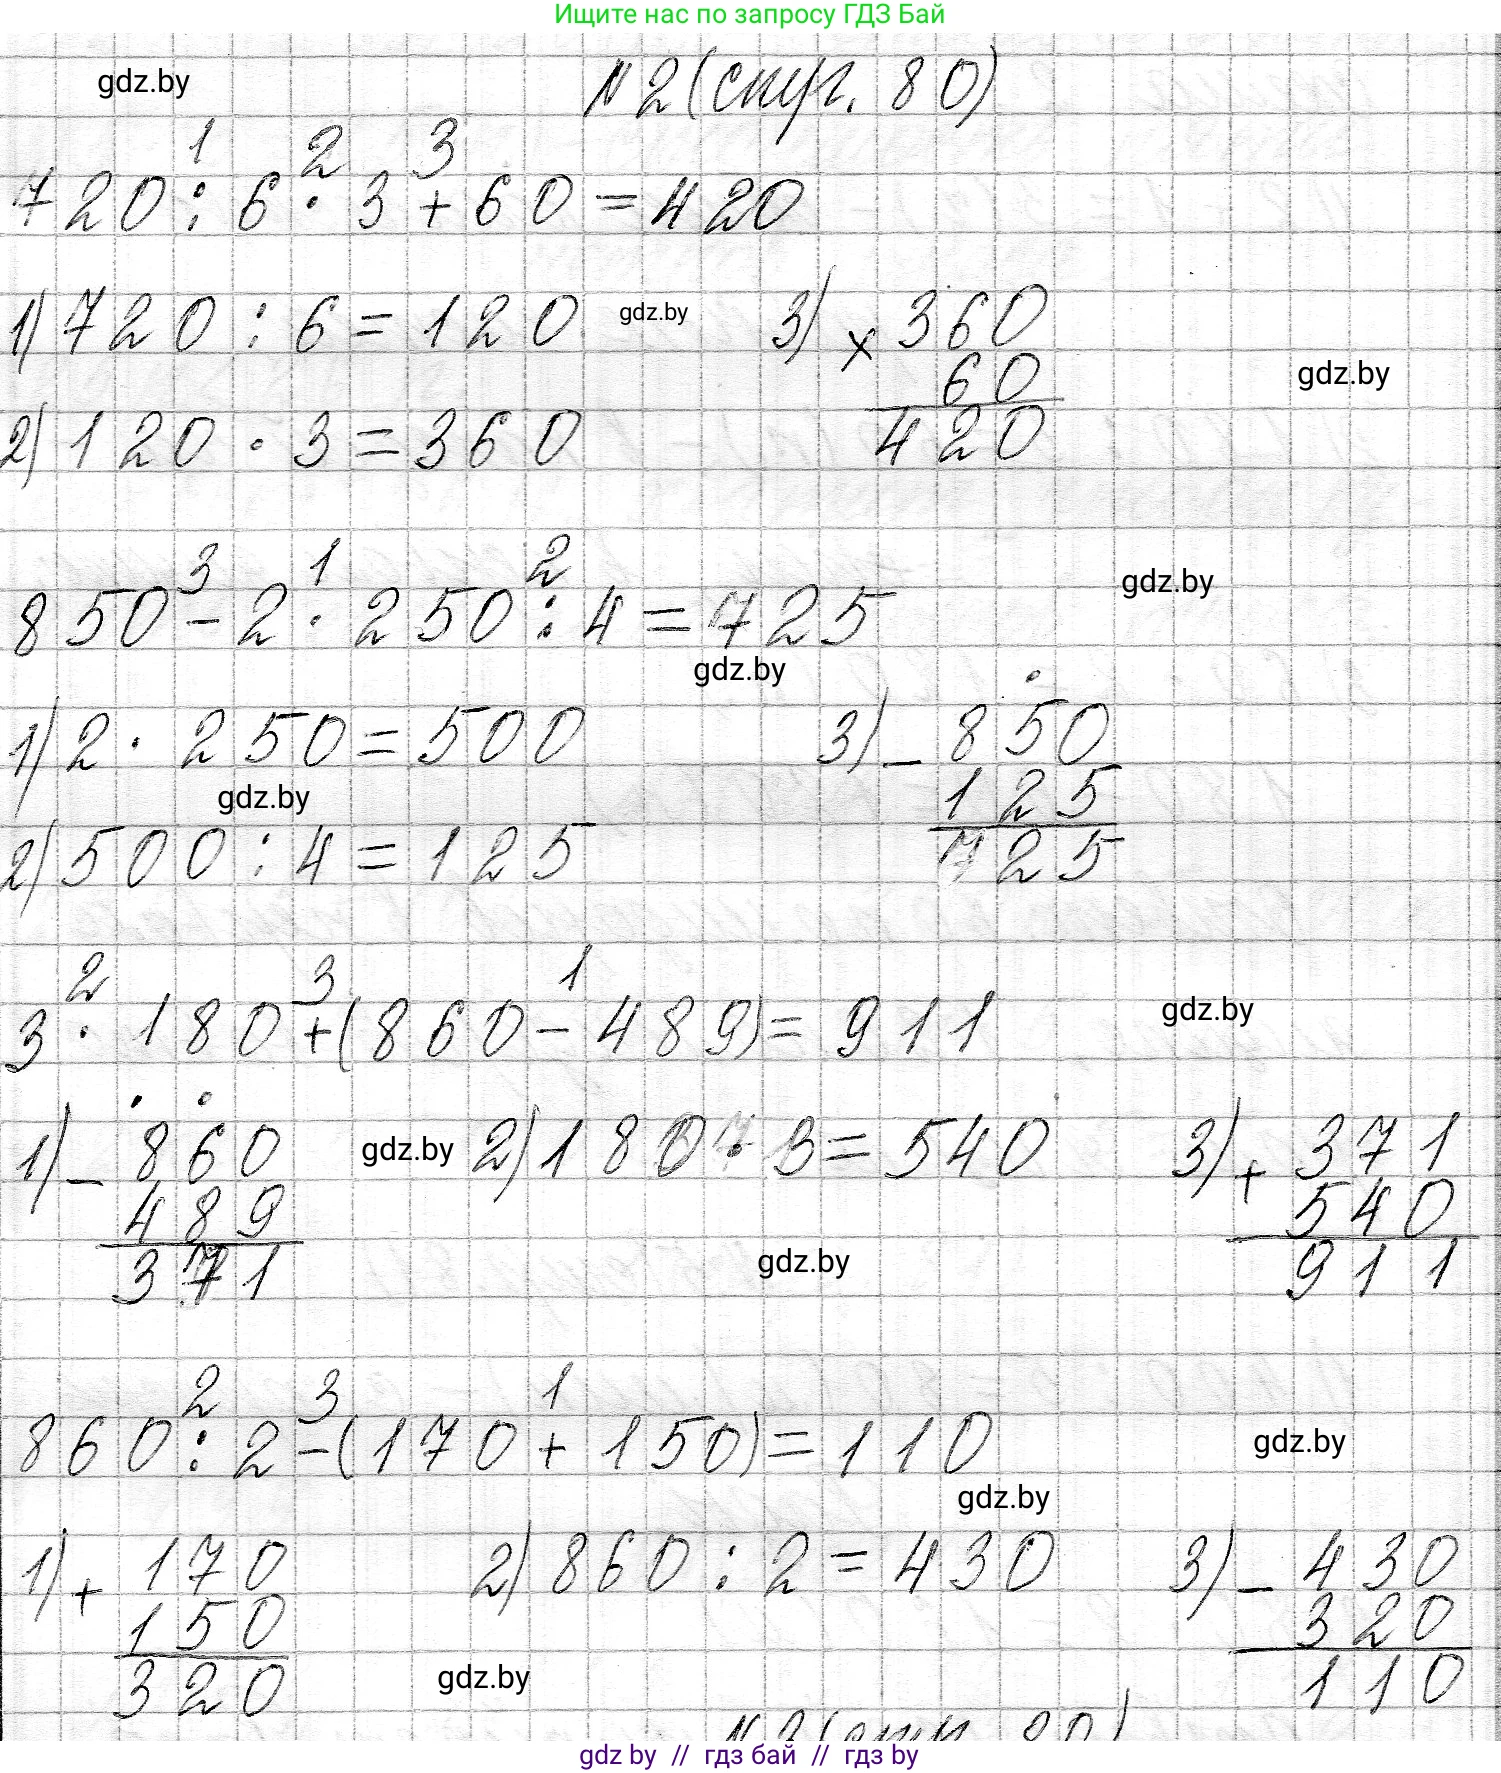 Ищите нас по запросу ГДЗ Бай
gdz.by
№2 (стр. 80)
1 2 3
720 : 6 · 3 + 60 = 420
1) 720 : 6 = 120
gdz.by
3) × 360
60
420
gdz.by
2) 120 · 3 = 360
3 1 2
850 - 2 · 250 : 4 = 725
gdz.by
gdz.by
1) 2 · 250 = 500
3) - 850
125
725
gdz.by
2) 500 : 4 = 125
2 3 1
3 · 180 + (860 - 489) = 911
gdz.by
1) - 860
489
371
gdz.by
2) 180 · 3 = 540
3) + 371
540
911
gdz.by
2 3 1
860 : 2 - (170 + 150) = 110
gdz.by
gdz.by
1) + 170
150
320
2) 860 : 2 = 430
3) - 430
320
110
gdz.by
gdz by // гдз бай // гдз by